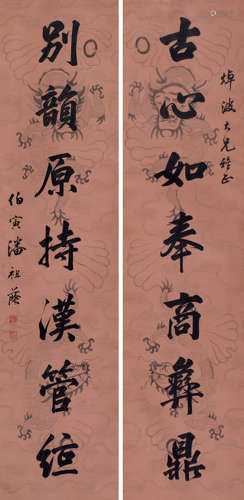 古心如奉商彝鼎
焯波大兄雅正
別韻原持漢管絙
伯寅潘祖蔭